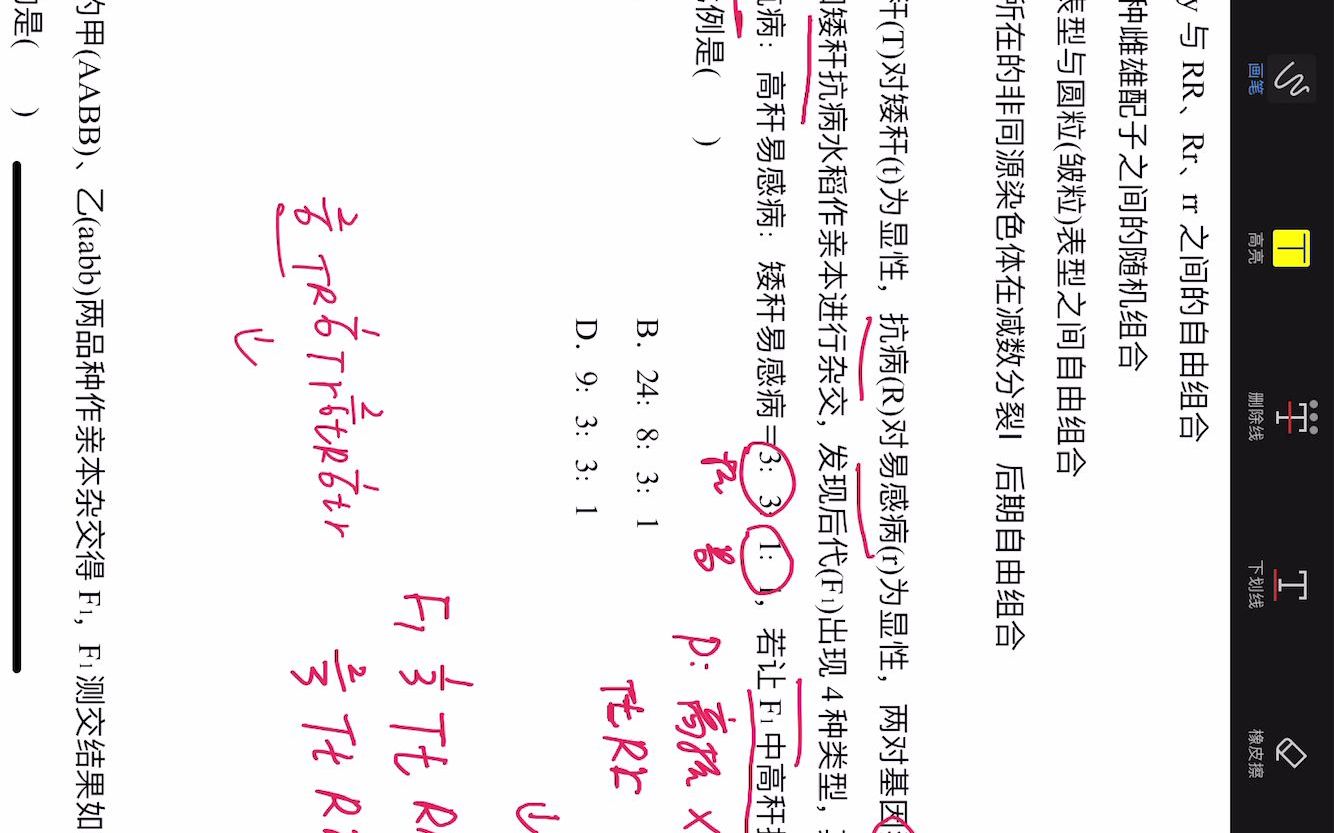 画笔
高亮
删除线
下划线
橡皮擦
y 与 RR、Rr、rr 之间的自由组合
种雌雄配子之间的随机组合
表型与圆粒(皱粒)表型之间自由组合
所在的非同源染色体在减数分裂Ⅰ 后期自由组合
秆(T)对矮秆(t)为显性，抗病(R)对易感病(r)为显性，两对基因
矮秆抗病水稻作亲本进行杂交，发现后代(F₁)出现 4 种类型，
病：高秆易感病：矮秆易感病＝3：3：1：1，若让 F₁ 中高秆
例是(　　)
抗 易
P: 高抗 ×
B. 24：8：3：1
Tt Rr
D. 9：3：3：1
F₁ 1/3 Tt R
2/6 TR 1/6 Tr 2/6 tR 1/6 tr
2/3 Tt R
的甲(AABB)、乙(aabb)两品种作亲本杂交得 F₁，F₁ 测交结果如
是(　　)